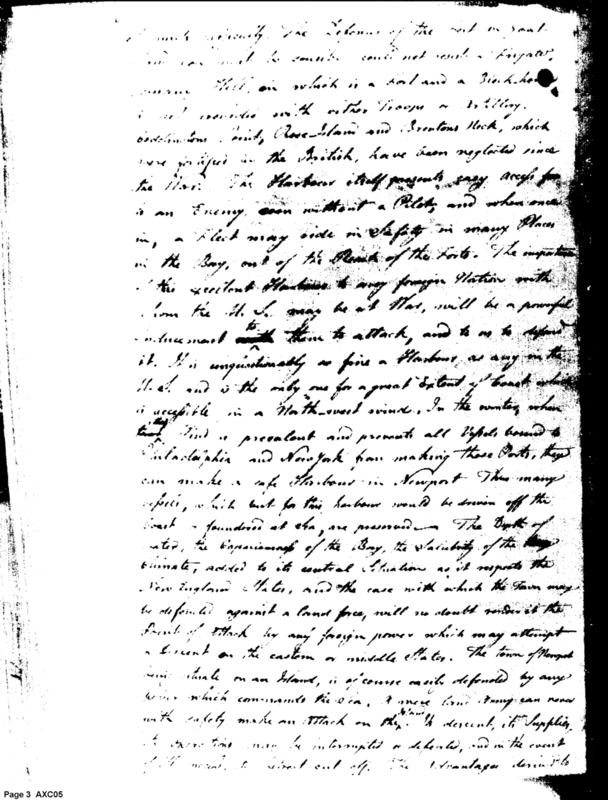 The Defences of the Port in
could not resist a Frigate,
Hill, on which is a Fort and a Block-house
is not provided with either Troops or Artillery.
Point, Rose-Island and Brentons Neck, which
were fortified by the British, have been neglected since
the War. The Harbour itself presents easy access for
to an Enemy, even without a Pilot, and when once
in, a Fleet may ride in Safety in many Places
in the Bay, out of the Reach of the Forts. The importance
of this excellent Harbour to any foreign Nation with
whom the U. S. may be at War, will be a powerful
inducement to them to attack, and to us to defend
it. It is unquestionably as fine a Harbour as any in the
U. S. and is the only one for a great Extent of Coast which
is accessible in a North-west wind. In the winter, when
this Wind is prevalent and prevents all Vessels bound to
Philadelphia and New York from making those Ports, they
can make a safe Harbour in Newport. Thus many
vessels, which but for this harbour would be driven off the
Coast or foundered at Sea, are preserved. The Depth of
water, the Capaciousness of the Bay, the Salubrity of the
Climate, added to its central Situation as it respects the
New England States, and the ease with which the Town may
be defended against a land force, will no doubt render it the
Point of Attack by any foreign power which may attempt
a Descent on the eastern or middle States. The town of Newport
being situate on an Island, is of course easily defended by any
power which commands the Sea. A mere land Army can never
with safety make an Attack on the Island. Its descent, its Supplies,
its operations may be interrupted or defeated, and in the event
to retreat cut off. The Advantages
Page 3 AXC05